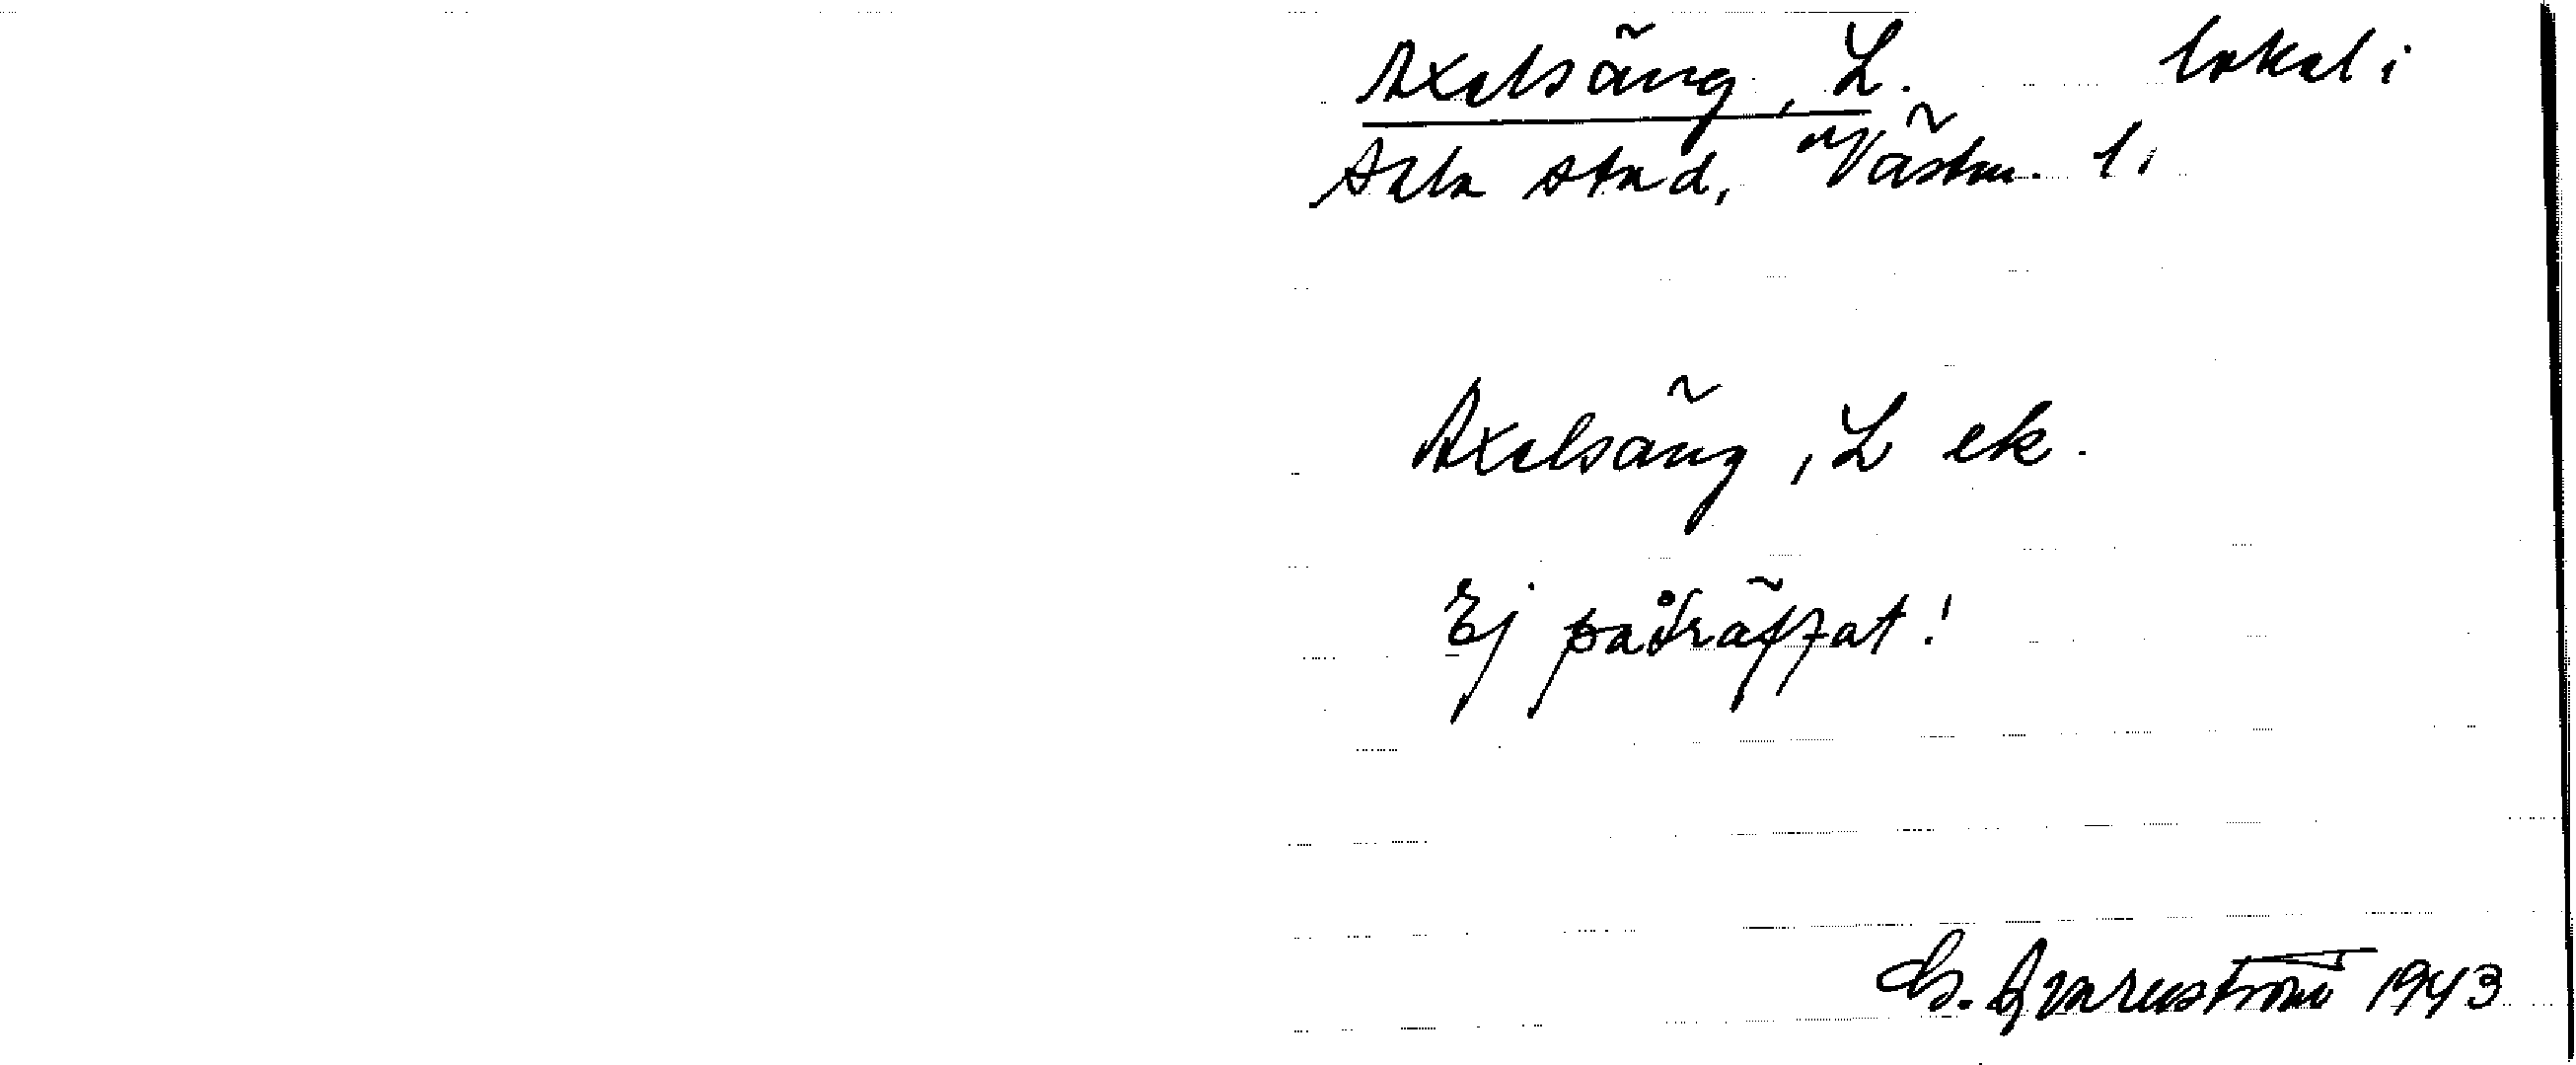 Axelsäng, L. lokal i
Sala stad, Västm. l.
Axelsäng, L ek.
Ej påträffat!
G. Qvarnström 1943